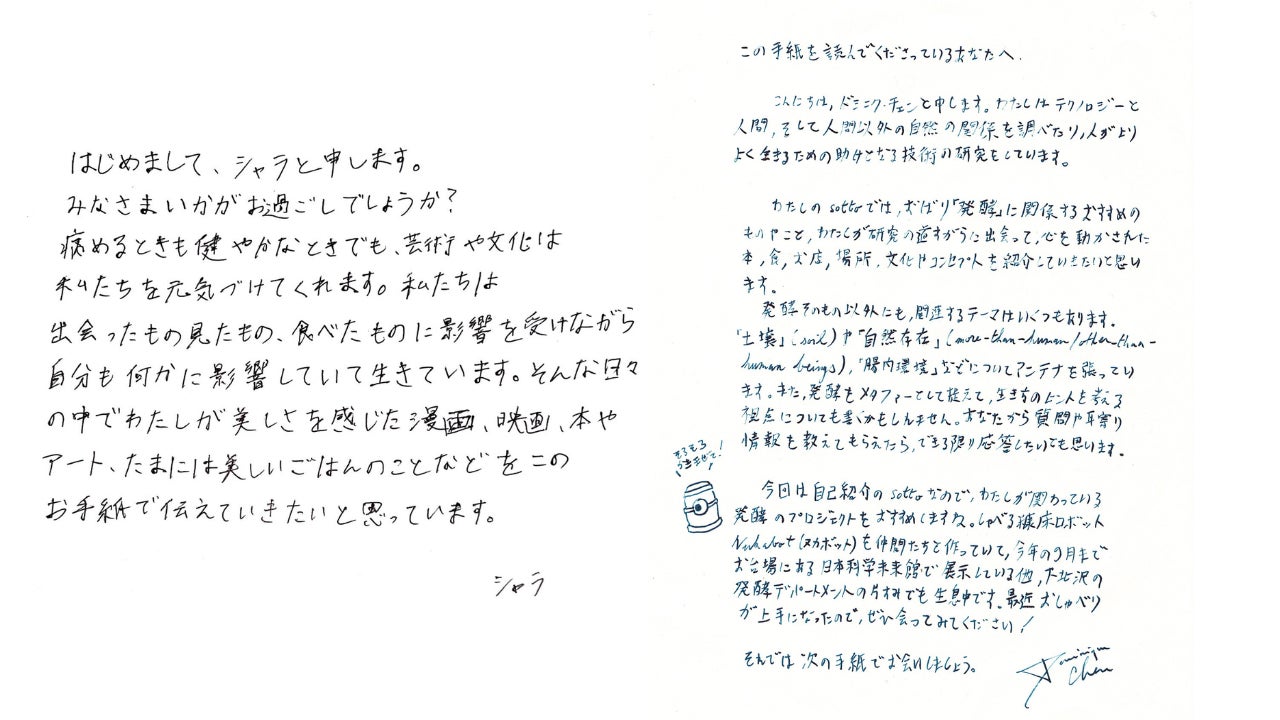 はじめまして、シャラと申します。
みなさまいかがお過ごしでしょうか?
病めるときも健やかなときでも、芸術や文化は
私たちを元気づけてくれます。私たちは
出会ったもの見たもの、食べたものに影響を受けながら
自分も何かに影響していて生きています。そんな日々
の中でわたしが美しさを感じた漫画、映画、本や
アート、たまには美しいごはんのことなどをこの
お手紙で伝えていきたいと思っています。
シャラ
この手紙を読んでくださっているあなたへ.
こんにちは,ドミニク・チェンと申します。わたしはテクノロジーと
人間,そして人間以外の自然の関係を調べたり,人がより
よく生きるための助けとなる技術の研究をしています。
わたしのsottoでは,ずばり「発酵」に関係するおすすめの
ものやこと,わたしが研究の道すがらに出会って,心を動かされた
本,食,お店,場所,文化やコンセプト,人を紹介していきたいと思い
ます。
発酵そのもの以外にも,関連するテーマはいくつもあります。
「土壌」(soil)や「自然存在」(more-than-human/other-than-
human beings),「腸内環境」などについてアンテナを張ってい
ます。また,発酵をメタファーとして捉えて,生き方のヒントを考える
視点についても書くかもしれません。あなたから質問や耳寄り
情報を教えてもらえたら,できる限り応答したいとも思います。
そろそろ
うまぜて!
今回は自己紹介のsottoなので,わたしが関わっている
発酵のプロジェクトをおすすめしますね。しゃべる糠床ロボット
Nukabot(ヌカボット)を仲間たちと作っていて,今年の9月まで
お台場にある日本科学未来館で展示している他,下北沢の
発酵デパートメントの片すみでも生息中です。最近おしゃべり
が上手になったので,ぜひ会ってみてください!
それでは次の手紙でお会いしましょう。
Dominique
Chen